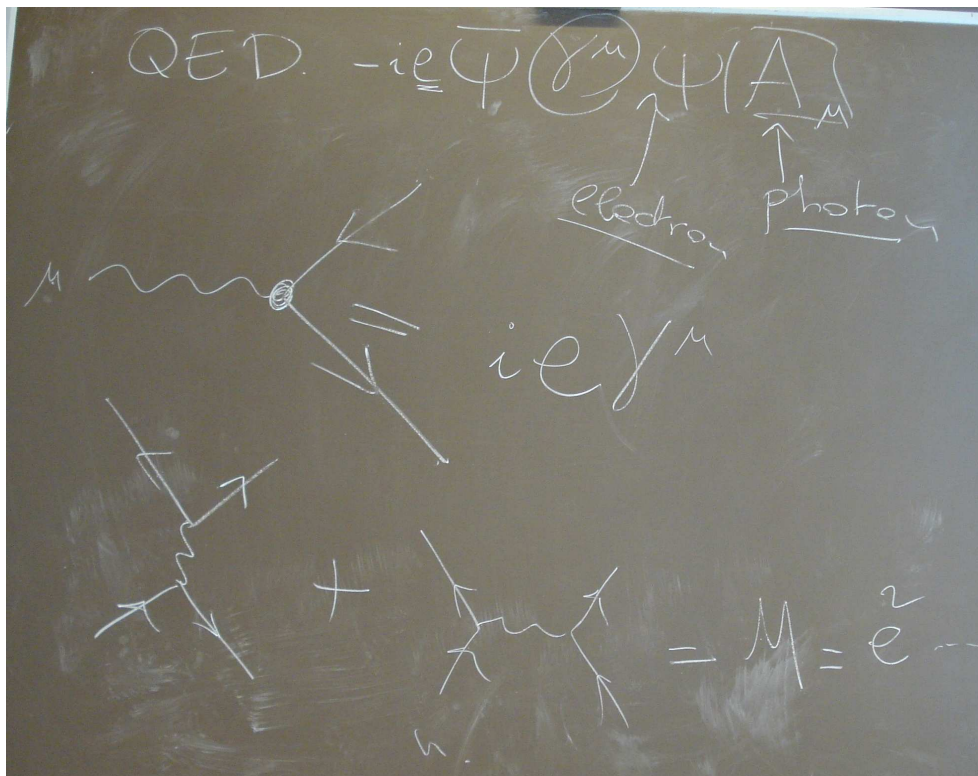 QED. -ie ψ̄ γ^μ ψ A_μ
electron photon
μ = ieγ^μ
+ = M = e² ---